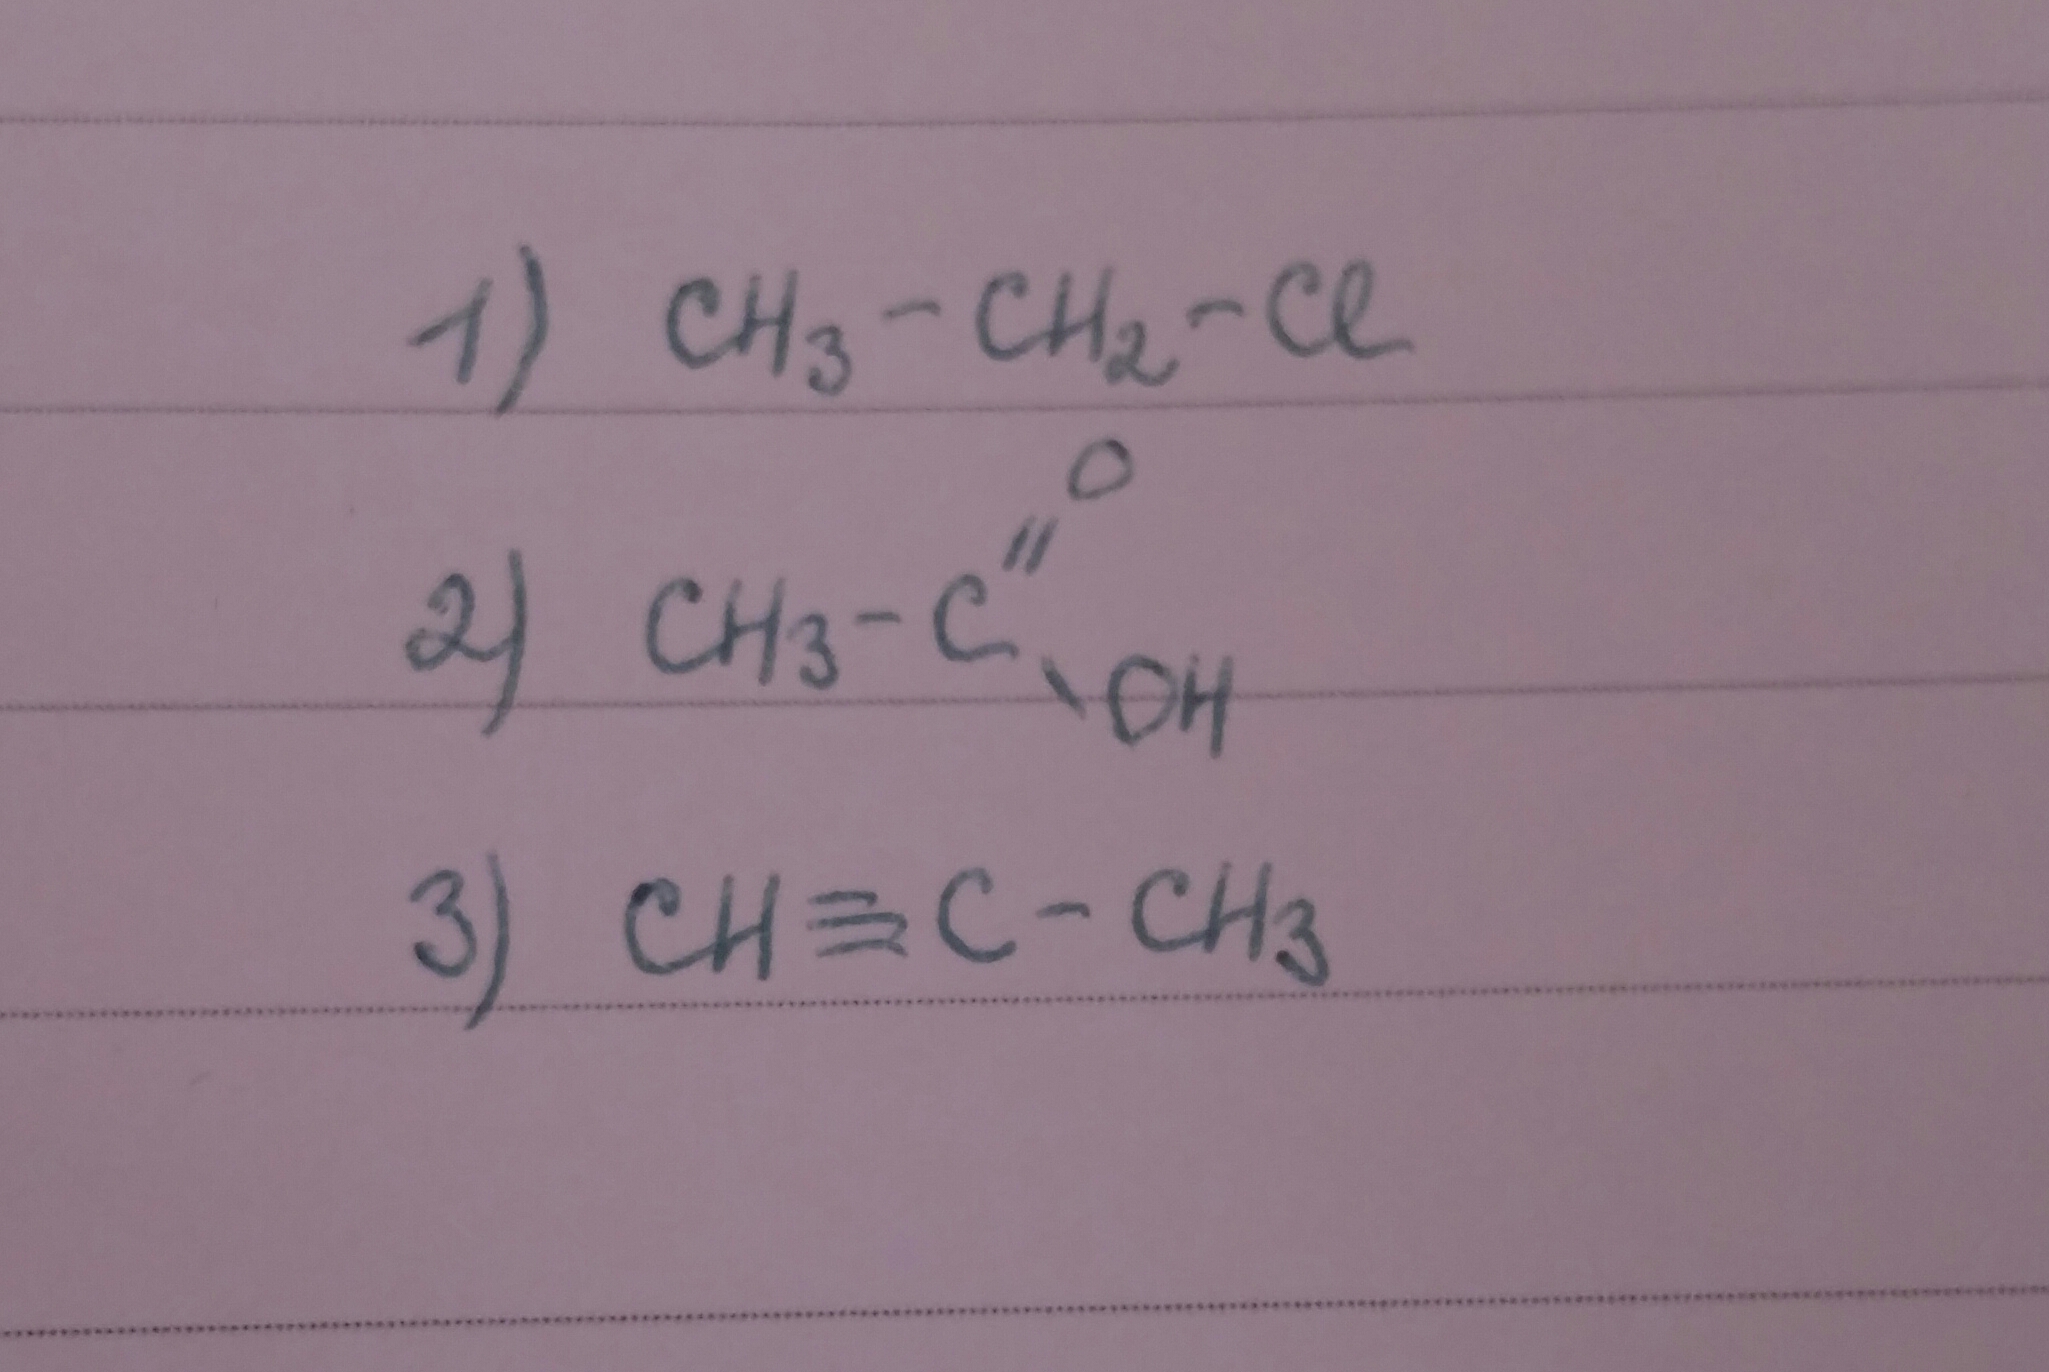 1) CH₃-CH₂-Cl
O
//
2) CH₃-C
\OH
3) CH≡C-CH₃